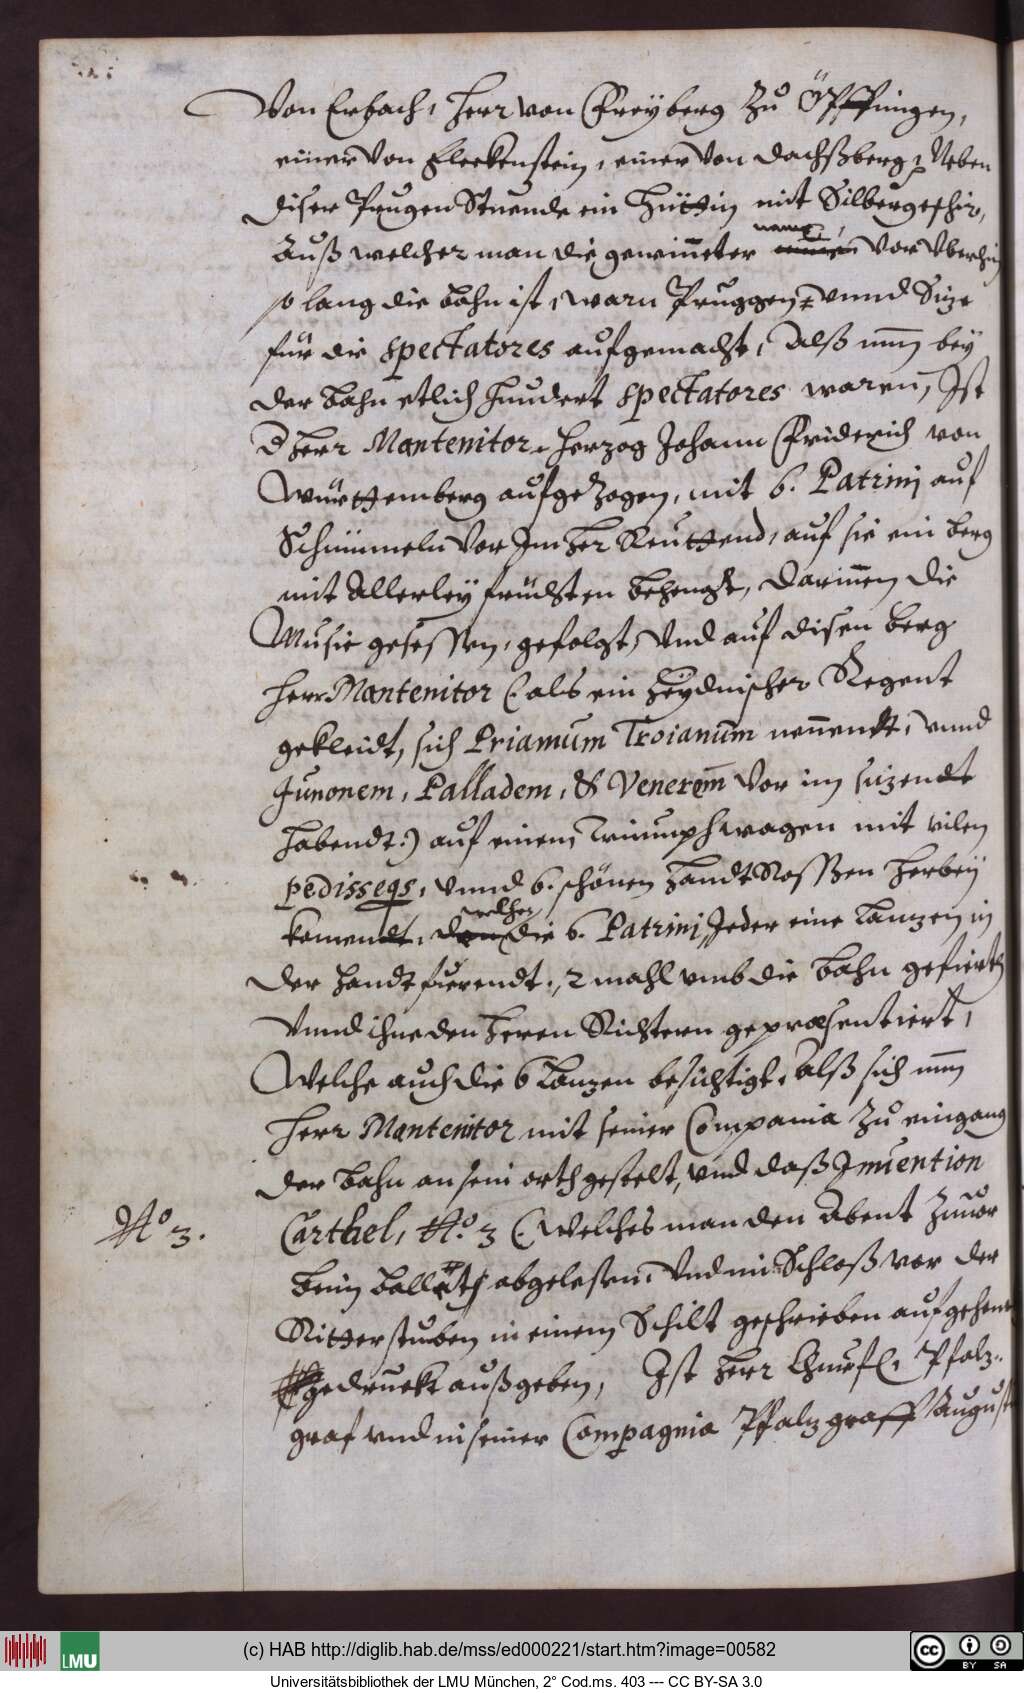 Von Erbach, Herr von Freyberg zu Öpffingen,
einer von Fleckenstein, einer von Dachßberg, Neben
diser Prugen Stuende ein Hüttin mit Silbergeschir,
Auß welcher man die gewinneter name vor Vberhin
so lang die bahn ist, warn Pruggen, vnnd Size
für die spectatores aufgemacht, Alß nun bey
der bahn etlich hundert spectatores waren, Ist
D Herr Mantenitor, Herzog Johann Friderich von
Württemberg aufgezogen, mit 6. Patrinj auf
Schimmeln Vor Im her Reuttend, auf sie ein berg
mit Allerley früchten behengkt, darinnen die
Music gesessen, gefolgt, Vnd auf disen berg
Herr Mantenitor (als ein heydnischer Regent
gekleidt, sich Priamum Troianum nennendt, vnnd
Junonem, Palladem, & Venerem vor im sizendt
habendt:) auf einem Triumphwagen mit vilen
pedisseqs, vnnd 6. schönen HandtRossen herbey
komendt, welchen die 6. Patrinj, Jeder eine Lanzen in
der handt fuerendt, 2 mahl vmb die bahn gefiert,
Vnnd ihne den herren Richtern gepræsentiert,
Welche auch die 6 Lanzen besichtigt, Alß sich nun
Herr Mantenitor mit seiner Compania zu eingang
der bahn an sein orth gestelt, vnd daß Inuention
Carthel, No. 3 (welches man den Abent zuuor
No 3.
beim ballet abgelesen, Vnd im Schloß vor der
Ritterstuben in einem Schilt geschrieben aufgehenckt
gedruckt außgeben, Ist Herr Churf. Pfalz-
graf vnd in seiner Compagnia Pfalzgraff August
(c) HAB http://diglib.hab.de/mss/ed000221/start.htm?image=00582
LMU
cc BY SA
Universitätsbibliothek der LMU München, 2° Cod.ms. 403 --- CC BY-SA 3.0